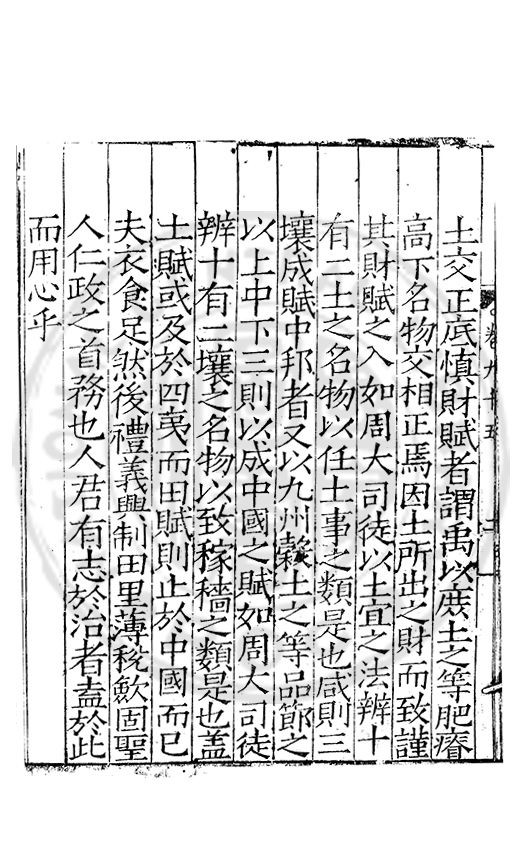 土交正底慎財賦者謂禹以庶土之等肥瘠
高下名物交相正焉因土所出之財而致謹
其財賦之入如周大司徒以土宜之法辨十
有二土之名物以任土事之類是也咸則三
壤成賦中邦者又以九州穀土之等品節之
以上中下三則以成中國之賦如周大司徒
辨十有二壤之名物以致稼穡之類是也盖
土賦或及於四夷而田賦則止於中國而已
夫衣食足然後禮義興制田里薄稅歛固聖
人仁政之首務也人君有志於治者盍於此
而用心乎